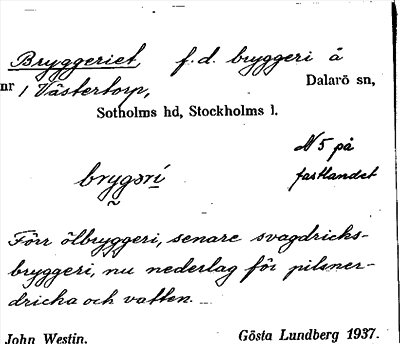 Bryggeriet, f. d. bryggeri å
nr 1 Västertorp, Dalarö sn,
Sotholms hd, Stockholms l.
N 5 på
fastlandet
brygərí
Förr ölbryggeri, senare svagdricks-
bryggeri, nu nederlag för pilsner-
dricka och vatten.
John Westin. Gösta Lundberg 1937.